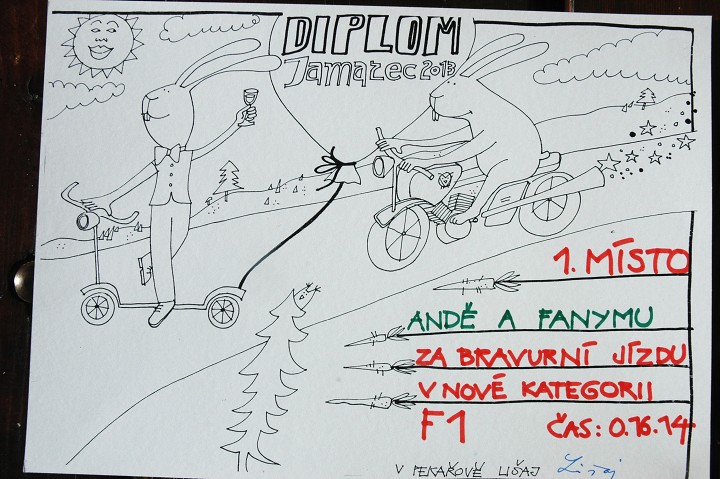 DIPLOM
Jamazec 2013
1. MÍSTO
ANDĚ A FANYMU
ZA BRAVURNÍ JÍZDU
V NOVÉ KATEGORII
F1 ČAS: 0.16.14
V PEKAŘOVĚ LIŠAJ Lišaj